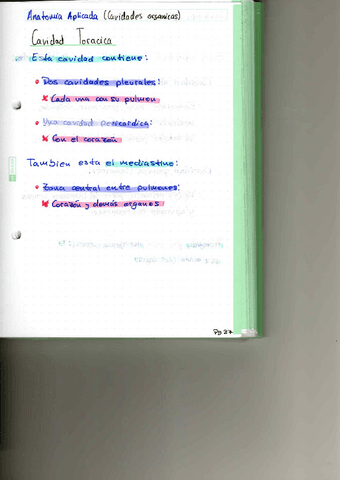 Anatomía Aplicada (Cavidades organicas)
Cavidad Toracica
Esta cavidad contiene:
• Dos cavidades pleurales:
× Cada una con su pulmon
• Una cavidad pericardica:
× Con el corazón
Tambien esta el mediastino:
• Zona central entre pulmones:
× Corazón y demás organos
Pg 27